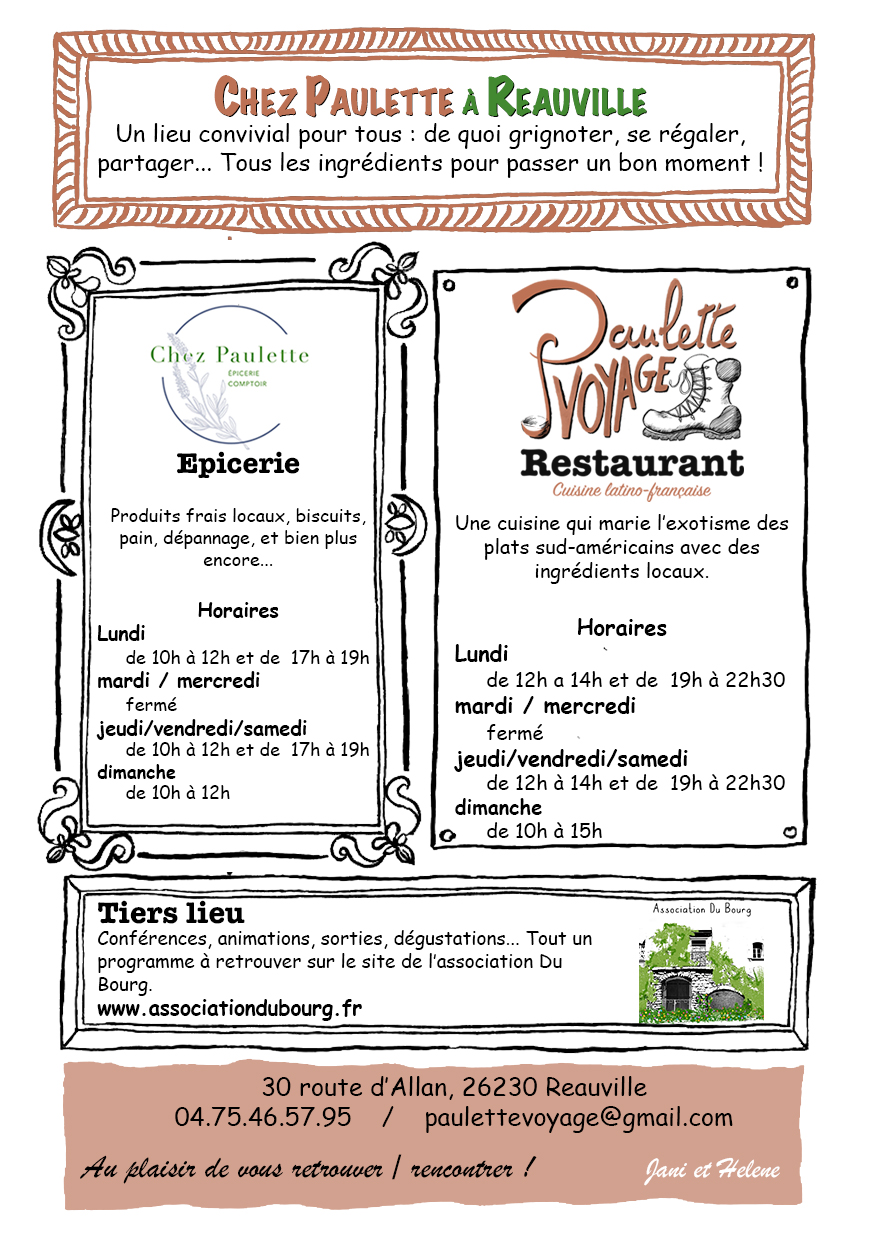 CHEZ PAULETTE À REAUVILLE
Un lieu convivial pour tous : de quoi grignoter, se régaler,
partager... Tous les ingrédients pour passer un bon moment !
Chez Paulette
ÉPICERIE
COMPTOIR
Epicerie
Produits frais locaux, biscuits,
pain, dépannage, et bien plus
encore...
Horaires
Lundi
de 10h à 12h et de 17h à 19h
mardi / mercredi
fermé
jeudi/vendredi/samedi
de 10h à 12h et de 17h à 19h
dimanche
de 10h à 12h
Paulette
VOYAGE
Restaurant
Cuisine latino-française
Une cuisine qui marie l'exotisme des
plats sud-américains avec des
ingrédients locaux.
Horaires
Lundi
de 12h a 14h et de 19h à 22h30
mardi / mercredi
fermé
jeudi/vendredi/samedi
de 12h à 14h et de 19h à 22h30
dimanche
de 10h à 15h
Tiers lieu
Conférences, animations, sorties, dégustations... Tout un
programme à retrouver sur le site de l'association Du
Bourg.
www.associationdubourg.fr
Association Du Bourg
30 route d'Allan, 26230 Reauville
04.75.46.57.95 / paulettevoyage@gmail.com
Au plaisir de vous retrouver / rencontrer !
Jani et Helene